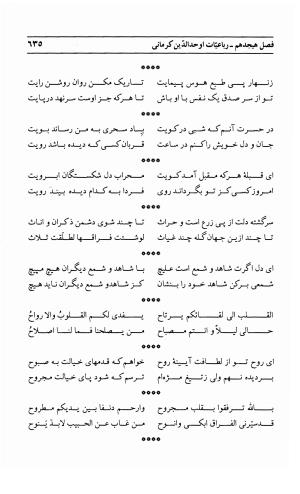 فصل هیجدهم ـ رباعیّات اوحدالدّین کرمانی ۶۳۵
****
زنهار پی طبع هوس پیمایت تاریک مکن روان روشن رایت
تو از سر صدق یک نفس با او باش تا هرکه جز اوست سر نهد در پایت
****
در حسرت آنم که شبی در کویت بیاد سحری به من رساند بویت
جان و دل خویش را کنم در ساعت قربان کسی که دیده باشد رویت
****
ای قبلهٔ هرکه مقبل آمد کویت محراب دل شکستگان ابرویت
امروز کسی کز تو بگرداند روی فردا به کدام دیده بیند رویت
****
سرگشته دلت از پی زرع است و حراث تا چند شوی دشمن ذکران و اناث
تا چند ازین جهان گله چند غیاث لوشئت فراقها اطلّقت ثلاث
****
ای دل اگرت شاهد و شمع است علیچ با شاهد و شمع دیگران هیچ مپیچ
شمعی برکن شاهد خود را بنشان کز شاهدو شمع دیگران ناید هیچ
****
القلب الی لقائکم یرتاح یفدی لکم القلوب والا رواح
حالی لیلاً و انتم مصباح من یصلحنا فما لنا اصلاح
****
ای روح تو از لطافت آیینهٔ روح خواهم که قدمهای خیالت به صبوح
بر دیده نهم ولی ز تیغ مژه‌ام ترسم که شود پای خیالت مجروح
****
بالله ترفقوا بقلب مجروح وارحم دنفا بین یدیکم مطروح
قدسیّرنی الفراق ابکی وانوح من غاب عن الحبیب لابدّ ینوح
****